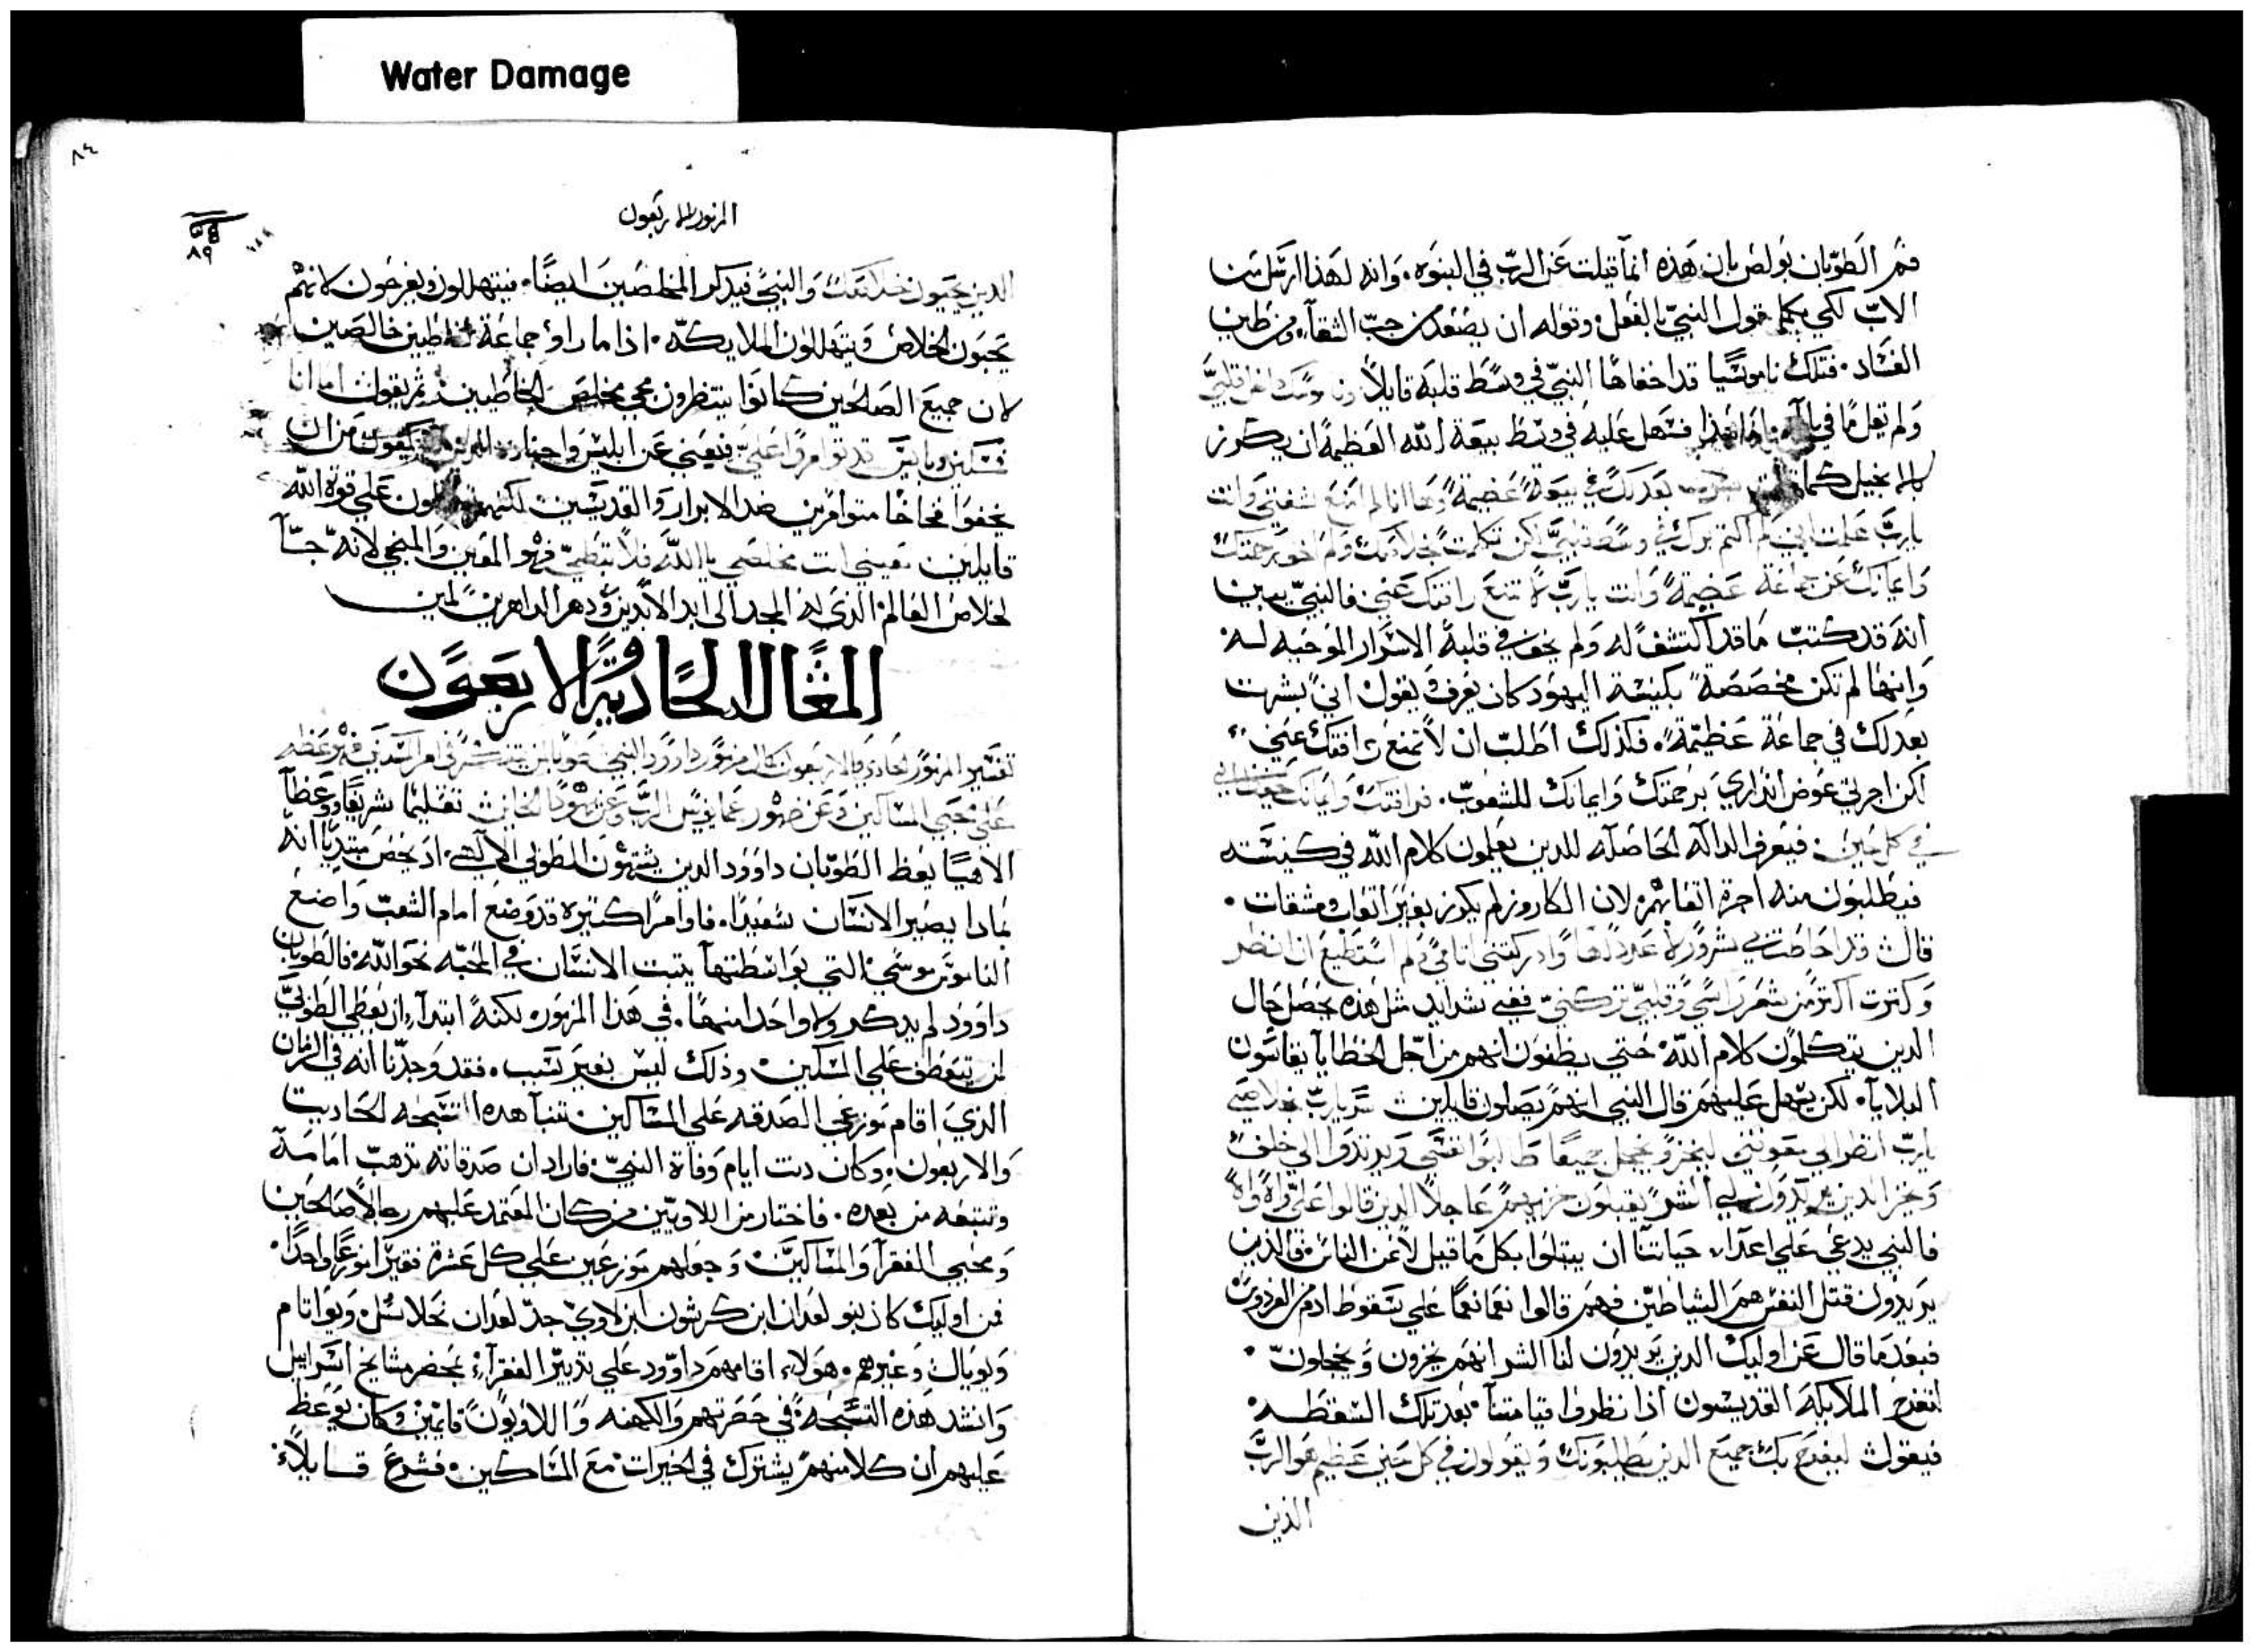 Water Damage
فسر الطوبان بولص بان هذه انما قيلت عن الرب في النبوه. وانه لهذا ارسل من
الاب لكي يكمل قول النبي بالفعل وقوله ان يصعدك من جب الشقآء ومن طين
الفساد. فتلك ناموسيا قد اخفاها النبي في وسط قلبه قايلا
ولم تقل ما في فسهل عليه في وسط بيعة الله العظيمة ان يكرز
كما بعدلك في بيعة عضيمة وها انا لم امنع شفتي وانت
يارب علمت اني لم اكتم برك في وسط قلبي لكن تكلمت بخلاصك ولم اخف رحمتك
وايمانك عن جماعة عضيمة وانت يارب لا تمنع رافتك عني فالنبي يبين
انه قد كتب ما قد اكتشف له ولم يخف في قلبه الاسرار الموحيه له
وانها لم تكن مخصصة بكنيسة اليهود كان يعرف ويقول اني بشرت
بعدلك في جماعة عظيمة. فكذلك اطلب ان لا تمنع رافتك عني
لكن اجرني عوض انذاري برحمتك وايمانك للشعوب. فرافتك وايمانك
في كل حين. فيعرف الداله الحاصله للدين يعلمون كلام الله في كنيسته
فيطلبون منه اجرة اتعابهم لان الكاروز لم يكرز بغير اتعاب ومشقات.
قال قد احاطت بي شرور لا عدد لها وادركتني اثامي ولم استطيع ان انظر
وكثرت اكثر من شعر راسي وقلبي تركني ففي شدايد مثل هذه يحصل حال
الدين يتكلمون كلام الله حتى يظنون انهم من اجل الخطايا يقاسون
البلايا. لكن يسهل عليهم قال النبي انهم يصلون قايلين سر يارب بخلاصي
يارب انظر الي معونتي ليخز ويخجل جميعا طالبوا نفسي ويرتدوا الي خلف
وخزا الدين يريدون لي الشر يقبلون خزيهم عاجلا الدين قالوا علي واه واه
فالنبي يدعي علي اعدآء حياتنا ان يبتلوا بكل ما قيل لا عن الناس فالذين
يريدون قتل النفس هم الشياطين فهم قالوا نعما نعما علي سقوط ادم من الفردوس
فبعد ما قال عن اوليك الدين يريدون لنا الشر انهم يخزون ويخجلون.
لتفرح الملايكة القديسون اذا نظروا قيامتنا بعد تلك السقطه
فيقول ليفرح بك جميع الدين يطلبونك ويقولون في كل حين عظيم هو الرب
الذين
٨٤
المزمور الاربعون
٨٩
الدين يحبون خلاصك والنبي فيدكر المخلصين ايضا. فيتهللون ويفرحون لانهم
يحبون الخلاص ويتهللون الملايكه. اذا ما راو جماعة الخاطيين خالصين
لان جميع الصالحين كانوا ينتظرون مجي مخلص الخاطيين ثم يقول اما انا
فمسكين وبايس فيعني عن ابليس واجناده من ان
يخفوا فخاخا متوامرين ضد الابرار والقديسين لكنهم علي قوة الله
قايلين معيني انت مخلصي يا الله فلا تبطي فهو المعين والمنجي لانه جآ
لخلاص العالم الذي له المجد الى ابد الابدين ودهر الداهرين امين
المقاله الحاديه والاربعون
تفسير المزمور الحادي والاربعون
الاهيا يعظ الطوبان داوود الدين يشتهون الطوبي الالهي. اد يخص مبتديا انه
بمادا يصير الانسان سعيدا. فاوامرا كتيره قد وضع امام الشعب واضع
الناموس موسي التي بواسطتها يتبت الانسان في المحبه نحو الله فالطوبان
داوود لم يدكر ولا واحدا منها. في هذا المزمور لكنه ابتدآء ان يعطي الطوبي
لمن يتعطف علي المسكين وذلك ليس بغير سبب. فقد وجدنا انه في الزمان
الذي اقام موزعي الصدقه علي المساكين تنبا هده التسبحه الحاديت
والاربعون. وكان دنت ايام وفاة النبي. فاراد ان صدقاته تذهب امامه
وتتبعه من بعده. فاختار من اللاويين من كان المعتمد عليهم رجالا صالحين
ومحبي الفقرآ والمساكين. وجعلهم موزعين علي كل عشرة فقيرا موزعا واحدا.
فمن اوليك كان بنو لعدان ابن كرشون ابن لاوي جد لعدان
وغيرهم. هولاء اقامهم داوود علي تدبير الفقرآء بمحضر مشايخ اسراييل
وانشد هذه التسبحه في حضرتهم والكهنه واللاويون قايمين وكان يوعظ
عليهم ان كلا منهم يشترك في الخيرات مع المساكين. فشرع قايلا